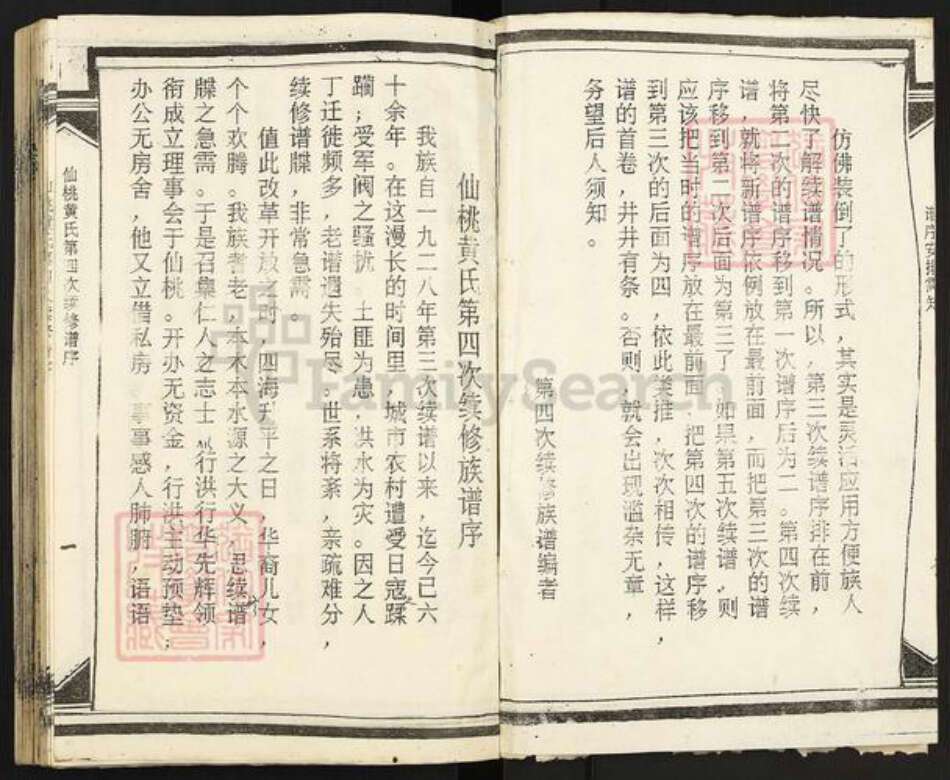 仿佛装倒了的形式，其实是灵活应用方便族人
尽快了解续谱情况。所以，第三次续谱序排在前，
将第二次的谱序移到第一次谱序后为二。第四次续
谱，就将新谱序依例放在最前面，而把第三次的谱
序移到第二次后面为第三了，如果第五次续谱，则
应该把当时的谱序放在最前面，把第四次的谱序移
到第三次的后面为四，依此类推，次次相传，这样，
谱的首卷，井井有条。否则，就会出现滥杂无章，
务望后人须知。
第四次续修族谱编者
仙桃黄氏第四次续修族谱序
我族自一九二八年第三次续谱以来，迄今己六
十余年。在这漫长的时间里，城市农村遭受日寇蹂
躏；受军阀之骚扰，土匪为患，洪水为灾。因之人
丁迁徙频多，老谱遗失殆尽。世系将紊，亲疏难分，
续修谱牒，非常急需。
值此改革开放之时，四海升平之日，华裔儿女，
个个欢腾。我族耆老，本木本水源之大义，思续谱
牒之急需。于是召集仁人之志士，行洪行华先辉领
衔成立理事会于仙桃。开办无资金，行洪主动预垫；
办公无房舍，他又立借私房，事事感人肺腑，语语
仙桃黄氏第四次续修谱序
一
FamilySearch